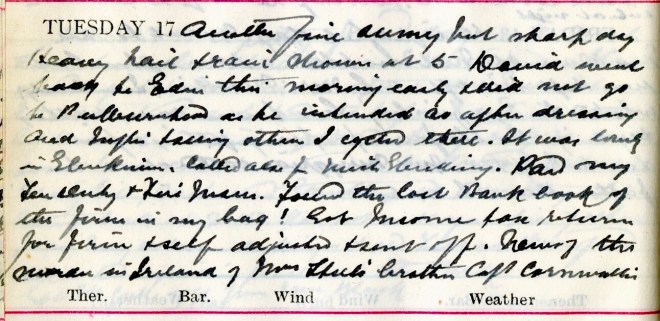 TUESDAY 17 Another fine sunny but sharp day
Heavy hail & rain showers at 5 David went
back to Edin this morning early & did not go
to as he intended as after dressing
and other I cycled there. It was
in Called also for Miss Paid my
& Found the lost Bank book of
the firm in my bag! Got Income tax return
for firm & self adjusted & sent off. News of the
murder in Ireland of Mrs brother Capt Cornwallis
Ther. Bar. Wind Weather